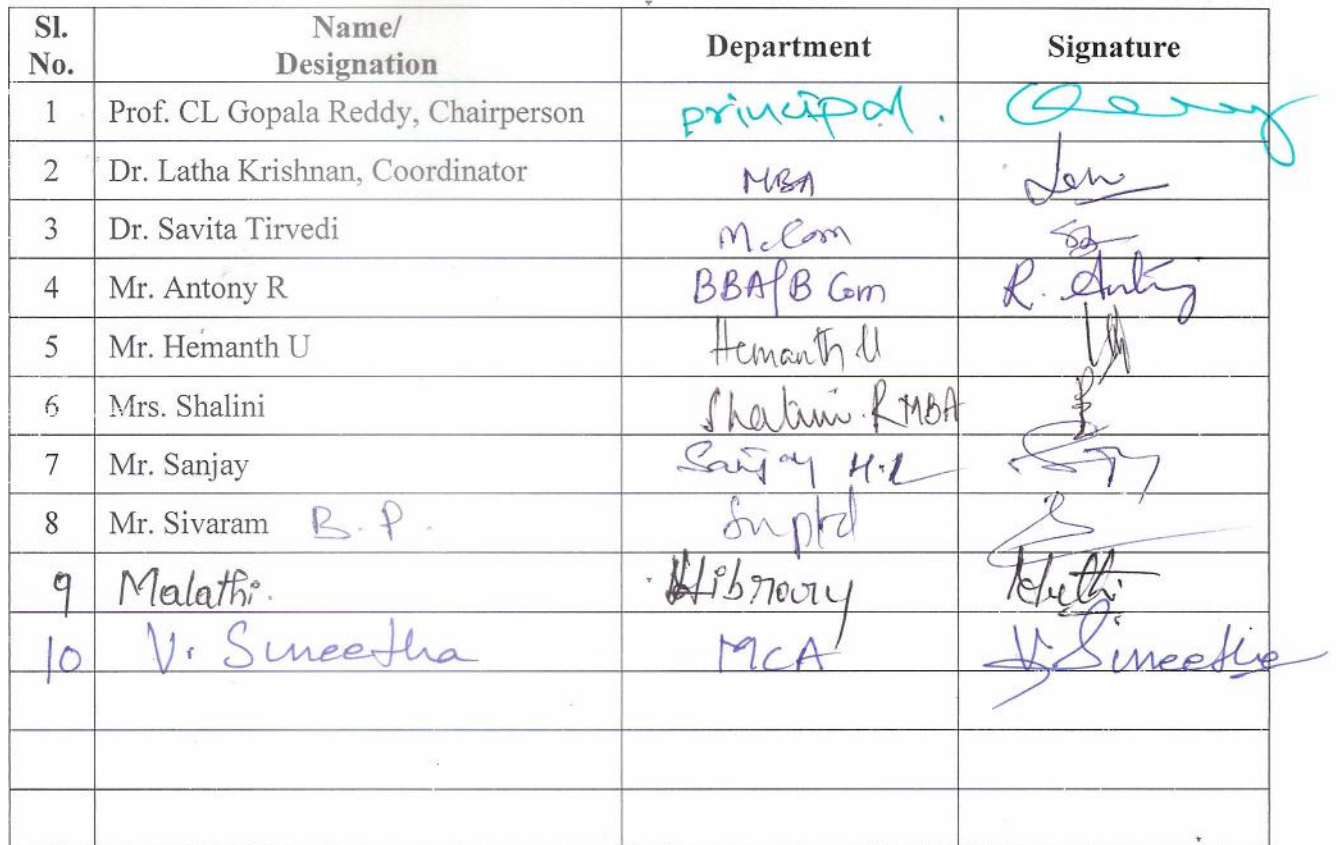 Sl. No. Name/ Designation Department Signature
1 Prof. CL Gopala Reddy, Chairperson principal.
2 Dr. Latha Krishnan, Coordinator MBA
3 Dr. Savita Tirvedi M.Com
4 Mr. Antony R BBA/B Com R. Antony
5 Mr. Hemanth U Hemanth U
6 Mrs. Shalini Shalini.R MBA
7 Mr. Sanjay Sanjay H.L
8 Mr. Sivaram B.P. Suptd
9 Malathi. Library
10 V. Suneetha MCA V. Suneetha